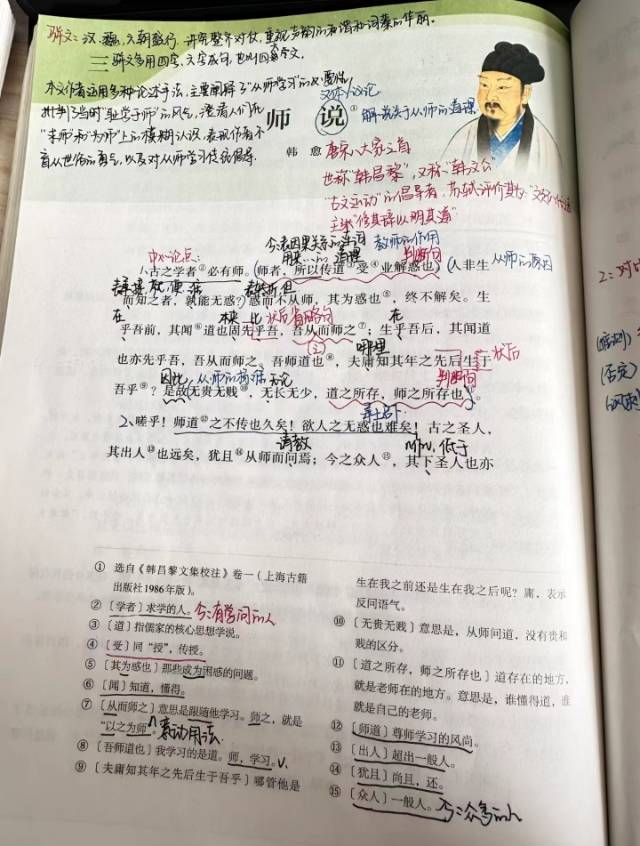 骈文：汉、魏、六朝盛行，讲究整齐对仗，重视声韵的和谐和词藻的华丽。
骈文多用四字、六字成句，也叫四六文。
本文作者运用多种论述手法，主要阐释了“从师学习”的必要性，
批判了当时“耻学于师”的风气，澄清人们在
“求师”和“为师”上的模糊认识，表现作者不
畏从世俗的勇气，以及对从师学习传统倡导。
文体：议论
师 说①
解说关于从师的道理
韩 愈
唐宋八大家之首
世称“韩昌黎”，又称“韩文公”
“古文运动”的倡导者，苏轼评价其为“文起八代之衰”
主张“修其辞以明其道”
今：表因果关系的连词
教师的作用
中心论点：
用来……的
道理
判断句
1、古之学者②必有师。（师者，所以传道③受④业解惑也）（人非生
从师的原因
而知之者，孰能无惑？惑而不从师，其为惑也⑤，终不解矣。生
在
本来
比
状后省略句
在
乎吾前，其闻⑥道也固先乎吾，吾从而师之⑦；生乎吾后，其闻道
（之）
哪里
也亦先乎吾，吾从而师之。吾师道也⑧，夫庸知其年之先后生于
状后
因此
从师的标准
无论
判断句
吾乎⑨？是故无贵无贱⑩，无长无少，道之所存，师之所存也⑪。
2、嗟乎！师道⑫之不传也久矣！欲人之无惑也难矣！古之圣人，
请教
低于
其出人⑬也远矣，犹且⑭从师而问焉；今之众人⑮，其下圣人也亦
① 选自《韩昌黎文集校注》卷一（上海古籍
出版社1986年版）。
② 〔学者〕求学的人。今：有学问的人
③ 〔道〕指儒家的核心思想学说。
④ 〔受〕同“授”，传授。
⑤ 〔其为惑也〕那些成为困惑的问题。
⑥ 〔闻〕知道，懂得。
⑦ 〔从而师之〕意思是跟随他学习。师之，就是
“以之为师”。意动用法
⑧ 〔吾师道也〕我学习的是道。师，学习。v.
⑨ 〔夫庸知其年之先后生于吾乎〕哪管他是
生在我之前还是生在我之后呢？庸，表示
反问语气。
⑩ 〔无贵无贱〕意思是，从师问道，没有贵和
贱的区分。
⑪ 〔道之所存，师之所存也〕道存在的地方，
就是老师在的地方。意思是，谁懂得道，谁
就是自己的老师。
⑫ 〔师道〕尊师学习的风尚。
⑬ 〔出人〕超出一般人。
⑭ 〔犹且〕尚且，还。
⑮ 〔众人〕一般人。今：众多的人
2：对